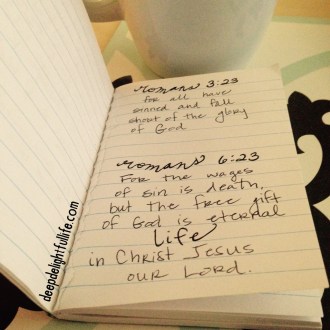 romans 3:23
For all have
sinned and fall
short of the glory
of God
romans 6:23
For the wages
of sin is death,
but the free gift
of God is eternal
Life
in Christ Jesus
our Lord.
deepdelightfullife.com